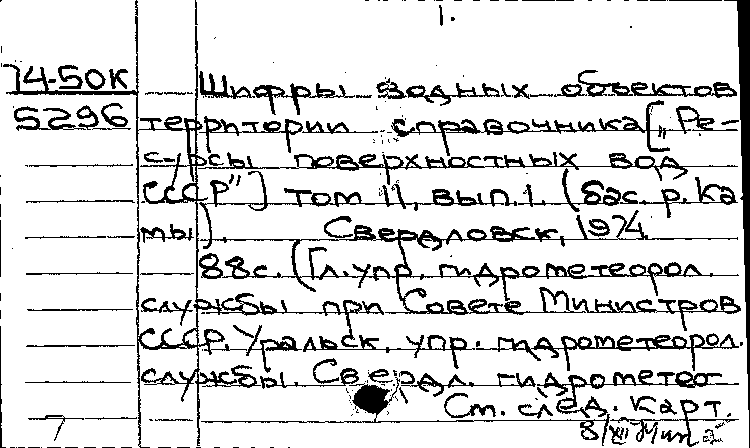 1.
74-50К Шифры водных объектов
5296 территории справочника [„Ре-
сурсы поверхностных вод
СССР"] том 11, вып. 1. (бас. р. Ка-
мы). Свердловск, 1974.
88с. (Гл. упр. гидрометеорол.
службы при Совете Министров
СССР. Уральск. упр. гидрометеорол.
службы. Свердл. гидрометео-
См. след. карт.
7 8/XII